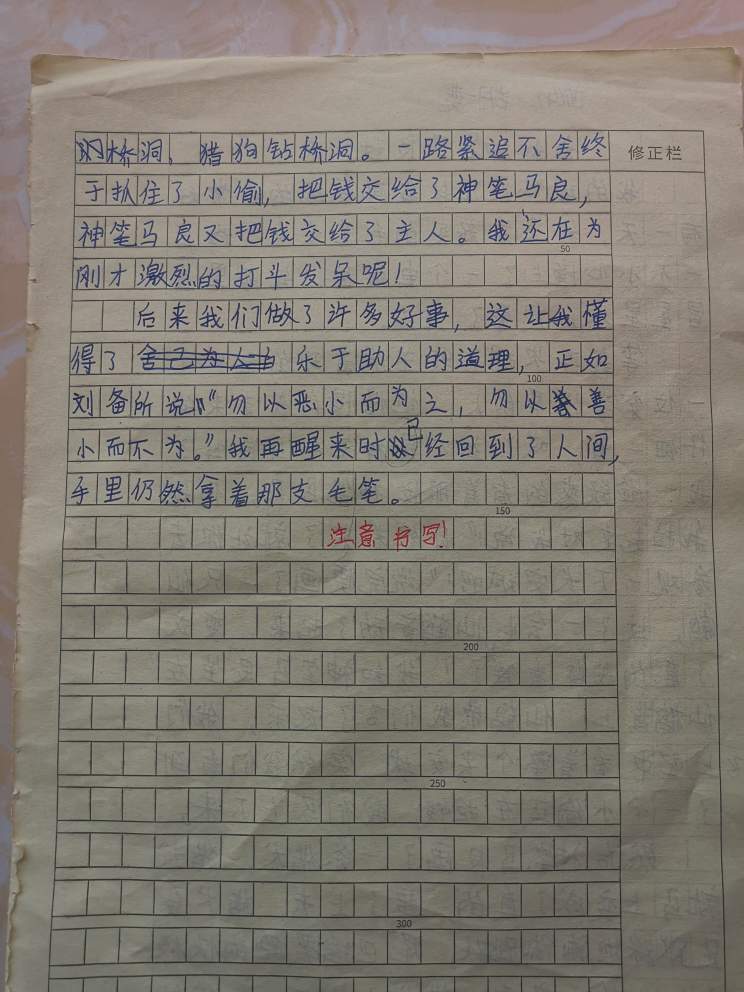 桥洞，猎狗钻桥洞。一路紧追不舍终
修正栏
于扒住了小偷，把钱交给了神笔马良，
神笔马良又把钱交给了主人。我还在为
50
刚才激烈的打斗发呆呢！
后来我们做了许多好事，这让我懂
得了舍己为人乐于助人的道理，正如
100
刘备所说“勿以恶小而为之，勿以善
小而不为。”我再醒来时已经回到了人间，
手里仍然拿着那支毛笔。
150
注意书写！
200
250
300